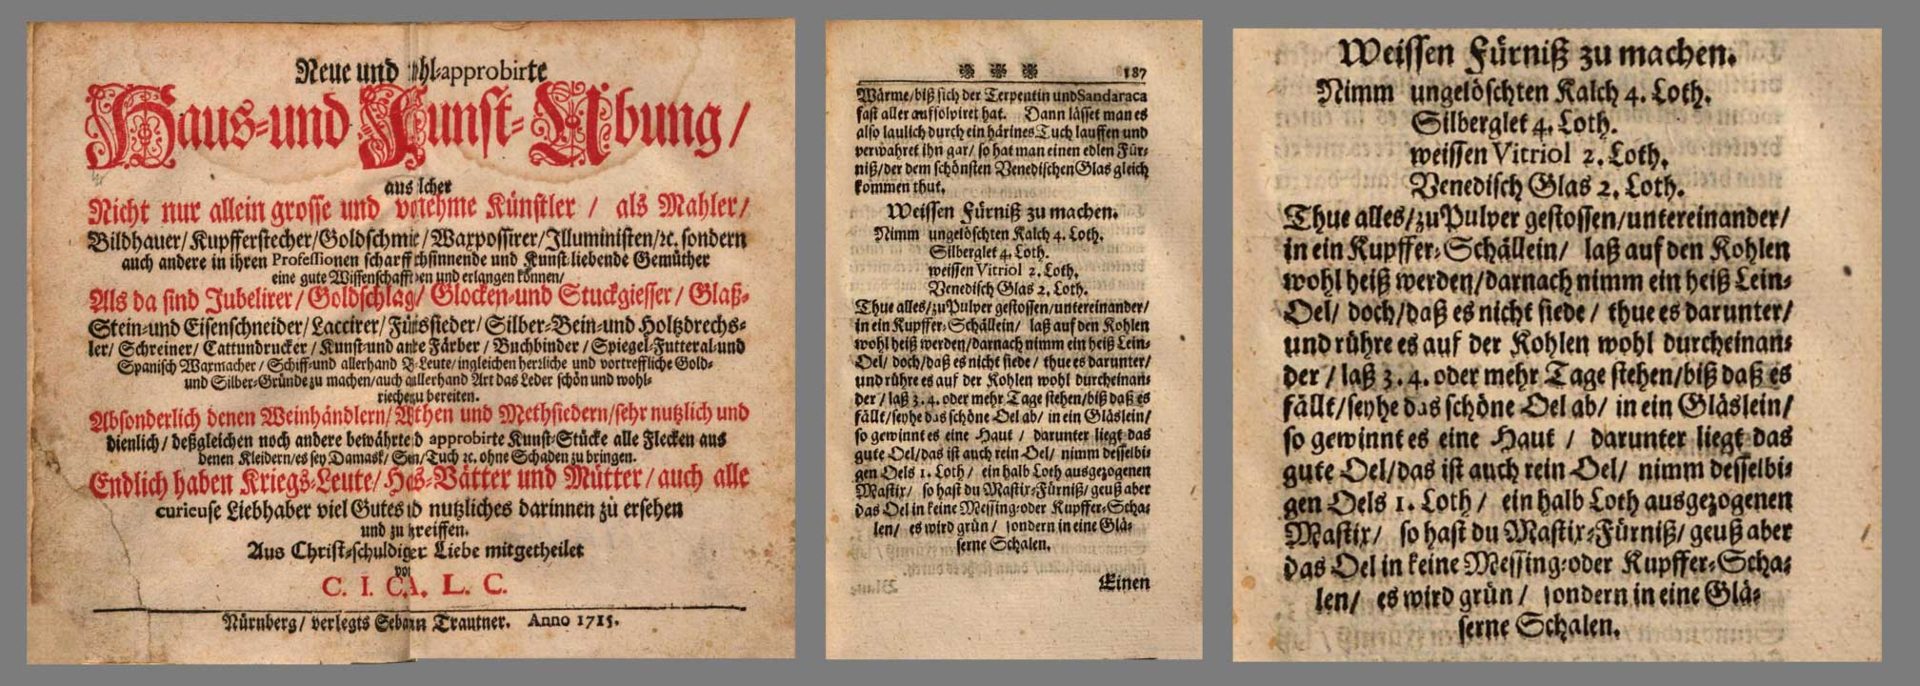 Neue und hl-approbirte
Haus-und Kunst-Ubung/
aus lcher
Nicht nur allein grosse und vornehme Künstler / als Mahler/
Bildhauer/Kupfferstecher/Goldschmie/Waxpossirer/Illuministen/ꝛc. sondern
auch andere in ihren Professionen scharff und Kunst-liebende Gemüther
eine gute Wissenschafft und erlangen können/
Als da sind Jubelirer/Goldschlag/ Glocken-und Stuckgiesser/ Glaß-
Stein-und Eisenschneider/Laccirer/ Silber-Bein-und Holtzdrechs-
ler/ Schreiner/Cattundrucker/Kunst-und Färber/Buchbinder/Spiegel-Futteral-und
Spanisch Warmacher/Schiff-und allerhand Leute/ingleichen herꝛliche und vortreffliche Gold-
und Silber-Gründe zu machen/auch allerhand Art das Leder schön und wohl-
riechend zu bereiten.
Absonderlich denen Weinhändlern/ und Methsiedern/sehr nutzlich und
dienlich/deßgleichen noch andere bewährte approbirte Kunst-Stücke alle Flecken aus
denen Kleidern/es sey Damask/ Tuch ꝛc. ohne Schaden zu bringen.
Endlich haben Kriegs-Leute/ Vätter und Mütter/auch alle
curieuse Liebhaber viel Gutes nutzliches darinnen zu ersehen
und zu greiffen.
Aus Christ-schuldiger Liebe mitgetheilet
von
C. I. CA. L. C.
Nürnberg/ verlegts Trautner. Anno 1715.
187
Wärme/biß sich der Terpentin und Sandaraca
fast aller auffolviret hat. Dann lässet man es
also laulich durch ein härines Tuch lauffen und
verwahret ihn gar/ so hat man einen edlen Für-
niß/der dem schönsten Venedischen Glas gleich
kommen thut.
Weissen Fürniß zu machen.
Nimm ungelöschten Kalch 4. Loth.
Silberglet 4. Loth.
weissen Vitriol 2. Loth.
Venedisch Glas 2. Loth.
Thue alles/zu Pulver gestossen/untereinander/
in ein Kupffer-Schällein/ laß auf den Kohlen
wohl heiß werden/darnach nimm ein heiß Lein-
Oel/ doch/daß es nicht siede/ thue es darunter/
und rühre es auf der Kohlen wohl durcheinan-
der/ laß 3. 4. oder mehr Tage stehen/biß daß es
fällt/seyhe das schöne Oel ab/ in ein Gläslein/
so gewinnt es eine Haut / darunter liegt das
gute Oel/das ist auch rein Oel/ nimm desselbi-
gen Oels 1. Loth / ein halb Loth ausgezogenen
Mastix/ so hast du Mastix-Fürniß/ geuß aber
das Oel in keine Messing-oder Kupffer-Scha-
len/ es wird grün/ sondern in eine Glä-
serne Schalen.
Einen
Weissen Fürniß zu machen.
Nimm ungelöschten Kalch 4. Loth.
Silberglet 4. Loth.
weissen Vitriol 2. Loth.
Venedisch Glas 2. Loth.
Thue alles/zu Pulver gestossen/untereinander/
in ein Kupffer-Schällein/ laß auf den Kohlen
wohl heiß werden/darnach nimm ein heiß Lein-
Oel/ doch/daß es nicht siede/ thue es darunter/
und rühre es auf der Kohlen wohl durcheinan-
der / laß 3. 4. oder mehr Tage stehen/biß daß es
fällt/seyhe das schöne Oel ab/ in ein Gläslein/
so gewinnt es eine Haut / darunter liegt das
gute Oel/das ist auch rein Oel/ nimm desselbi-
gen Oels 1. Loth / ein halb Loth ausgezogenen
Mastix/ so hast du Mastix-Fürniß/ geuß aber
das Oel in keine Messing-oder Kupffer-Scha-
len/ es wird grün/ sondern in eine Glä-
serne Schalen.